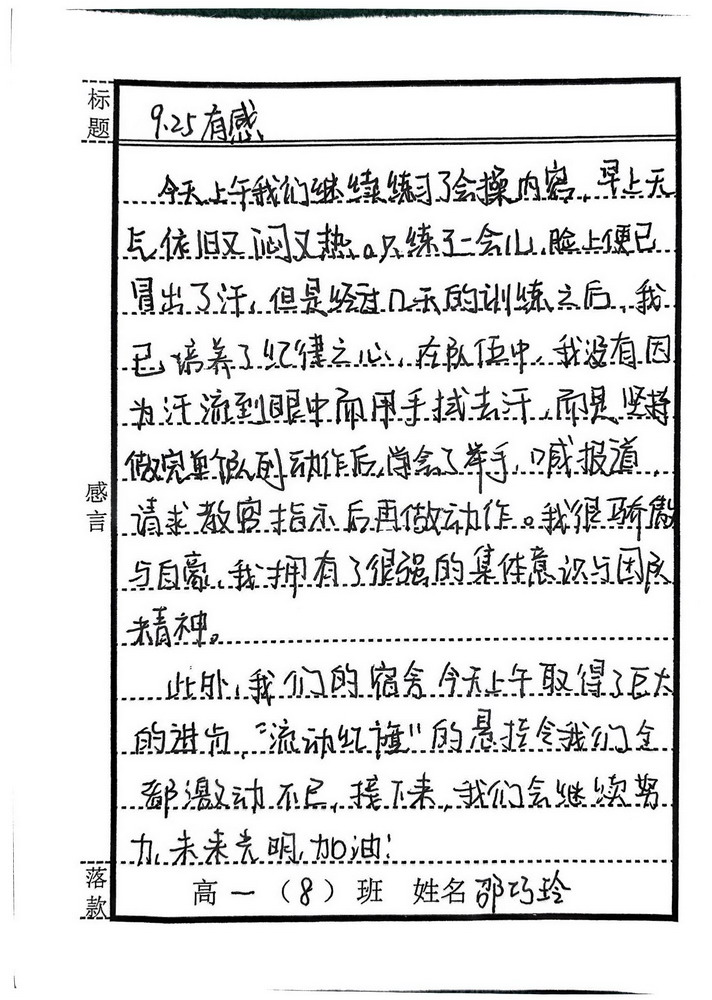 标题
9.25有感
今天上午我们继续练习了会操内容，早上天
气依旧又闷又热。只练了一会儿，脸上便已
冒出了汗，但是经过几天的训练之后，我
已培养了纪律之心，在队伍中，我没有因
为汗流到眼中而用手拭去汗，而是坚持
做完单个队列动作后，学会了举手，喊报道，
请求教官指示后再做动作。我很骄傲
与自豪，我拥有了很强的集体意识与团队
精神。
此外，我们的宿舍今天上午取得了巨大
的进步，“流动红旗”的悬挂令我们全
都激动不已，接下来，我们会继续努
力，未来光明，加油！
感言
落款
高一（8）班 姓名 邵巧玲